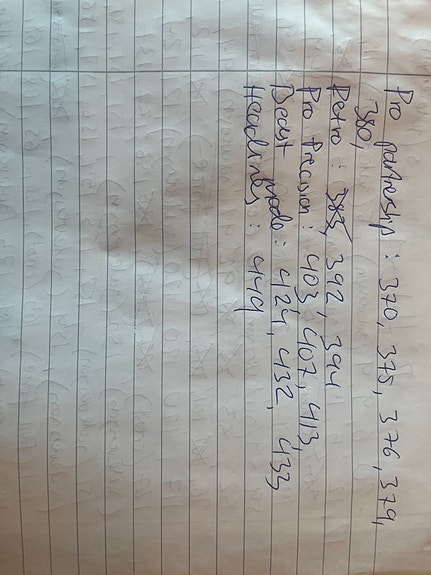 Pro partnership : 370, 375, 376, 379,
380,
Retro : 385, 392, 394
Pro Precision : 403, 407, 413,
Beast mode : 424, 432, 433
Headlines : 449